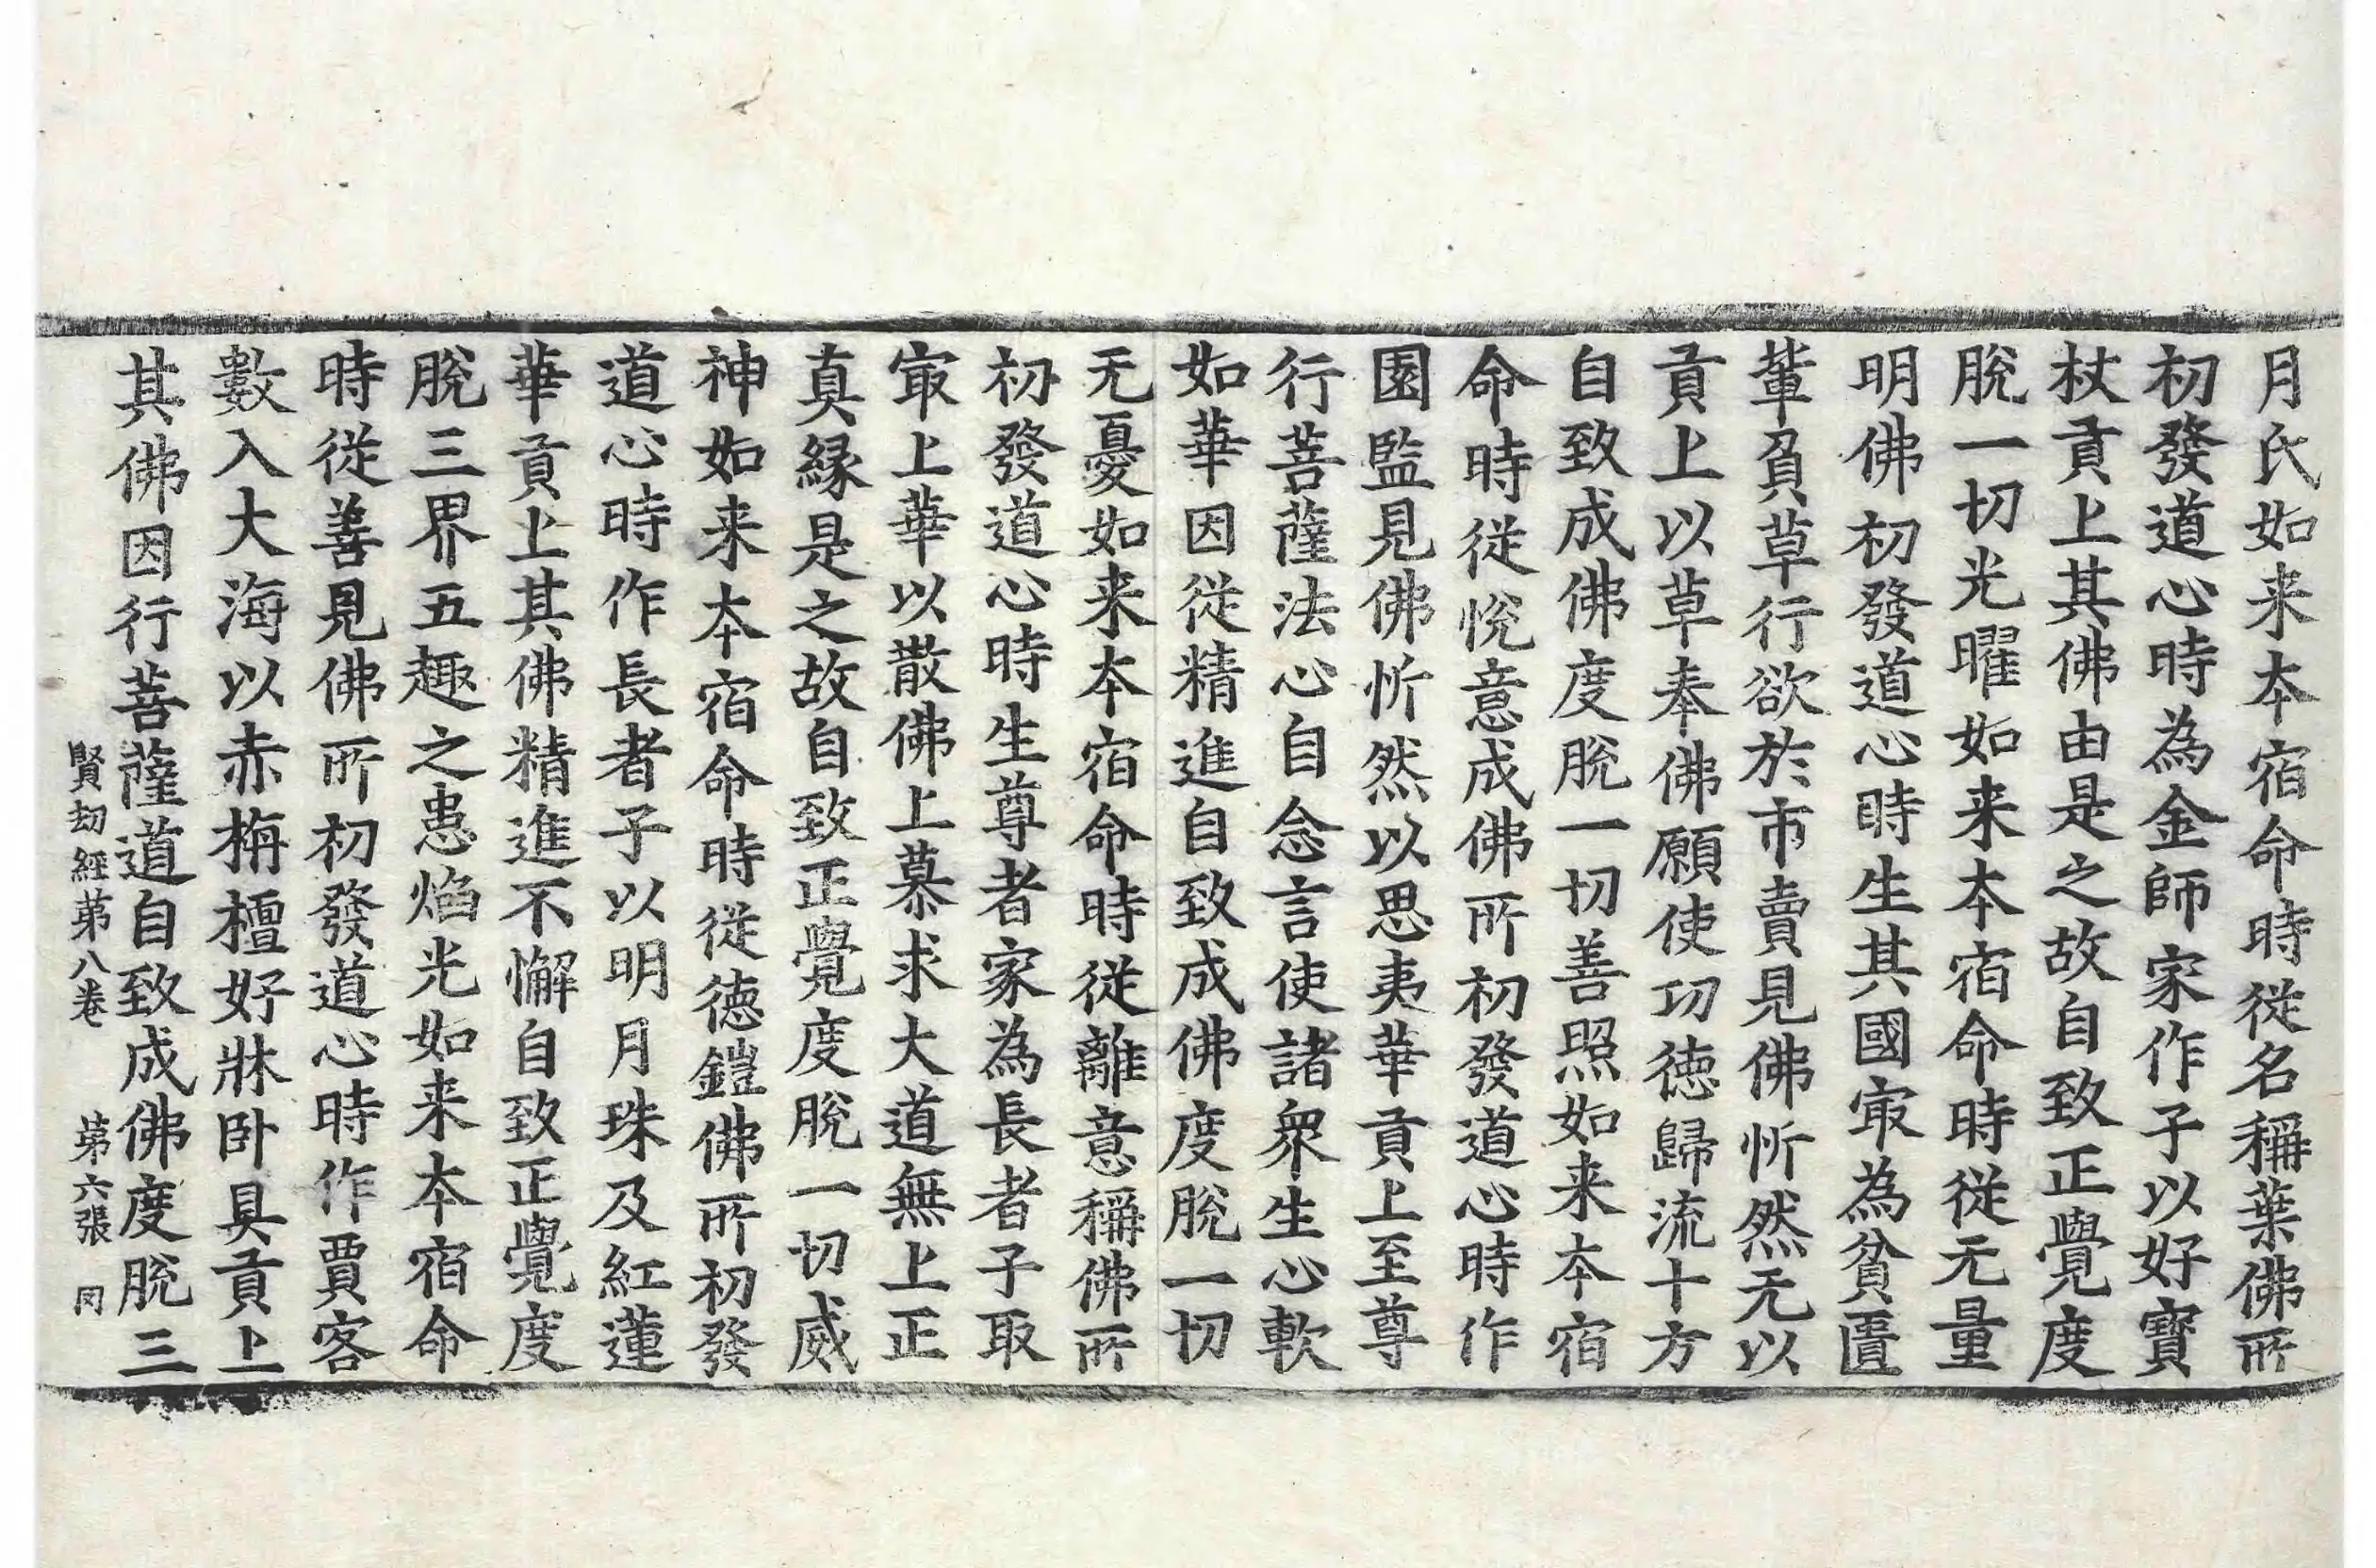 月氏如来本宿命時從名稱葉佛所
初發道心時為金師家作子以好寶
杖貢上其佛由是之故自致正覺度
脫一切光曜如来本宿命時從无量
明佛初發道心時生其國㝡為貧匱
輦負草行欲於市賣見佛忻然无以
貢上以草奉佛願使功德歸流十方
自致成佛度脫一切善照如来本宿
命時從悅意成佛所初發道心時作
園監見佛忻然以思夷華貢上至尊
行菩薩法心自念言使諸衆生心軟
如華因從精進自致成佛度脫一切
无憂如来本宿命時從離意稱佛所
初發道心時生尊者家為長者子取
㝡上華以散佛上慕求大道無上正
真縁是之故自致正覺度脫一切威
神如来本宿命時從德鎧佛所初發
道心時作長者子以明月珠及紅蓮
華貢上其佛精進不懈自致正覺度
脫三界五趣之患焰光如来本宿命
時從善見佛所初發道心時作賈客
數入大海以赤栴檀好牀臥具貢上
其佛因行菩薩道自致成佛度脫三
賢劫經第八卷 第六張 同